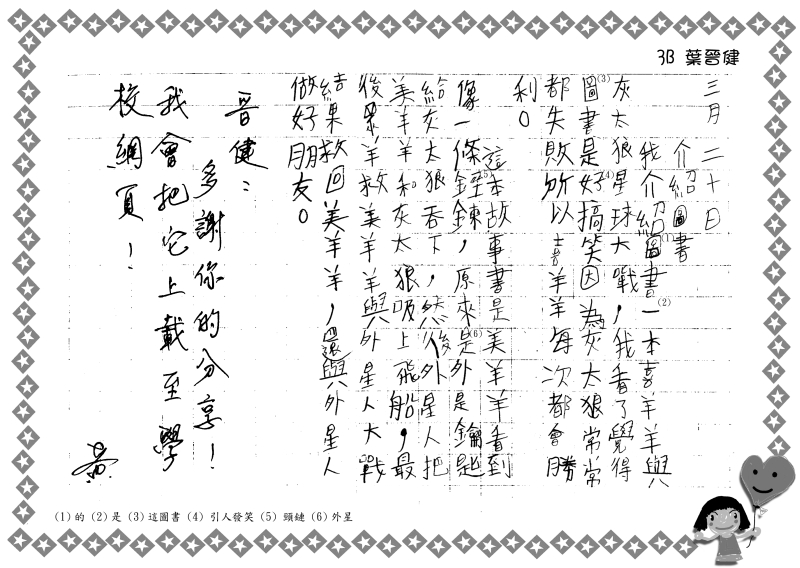 3B 葉晉健
三月二十日
介紹圖書
我介紹圖書(1)一(2)本喜羊羊與
灰太狼星球大戰，我看了覺得
圖書(3)是好搞笑(4)因為灰太狼常常
都失敗所以喜羊羊每次都會勝
利。
這本故事書是美羊羊看到
像一條鋞鍊(5)，原來是(6)外是鑰匙
給灰太狼吞下，然後外星人把
美羊羊和灰太狼吸上飛船，最
後眾羊救美羊羊與外星人大戰
結果救回美羊羊，還與外星人
做好朋友。
晉健：
多謝你的分享！
我會把它上載至學
校網頁！
(1)的 (2)是 (3)這圖書 (4) 引人發笑 (5) 頸鏈 (6)外星